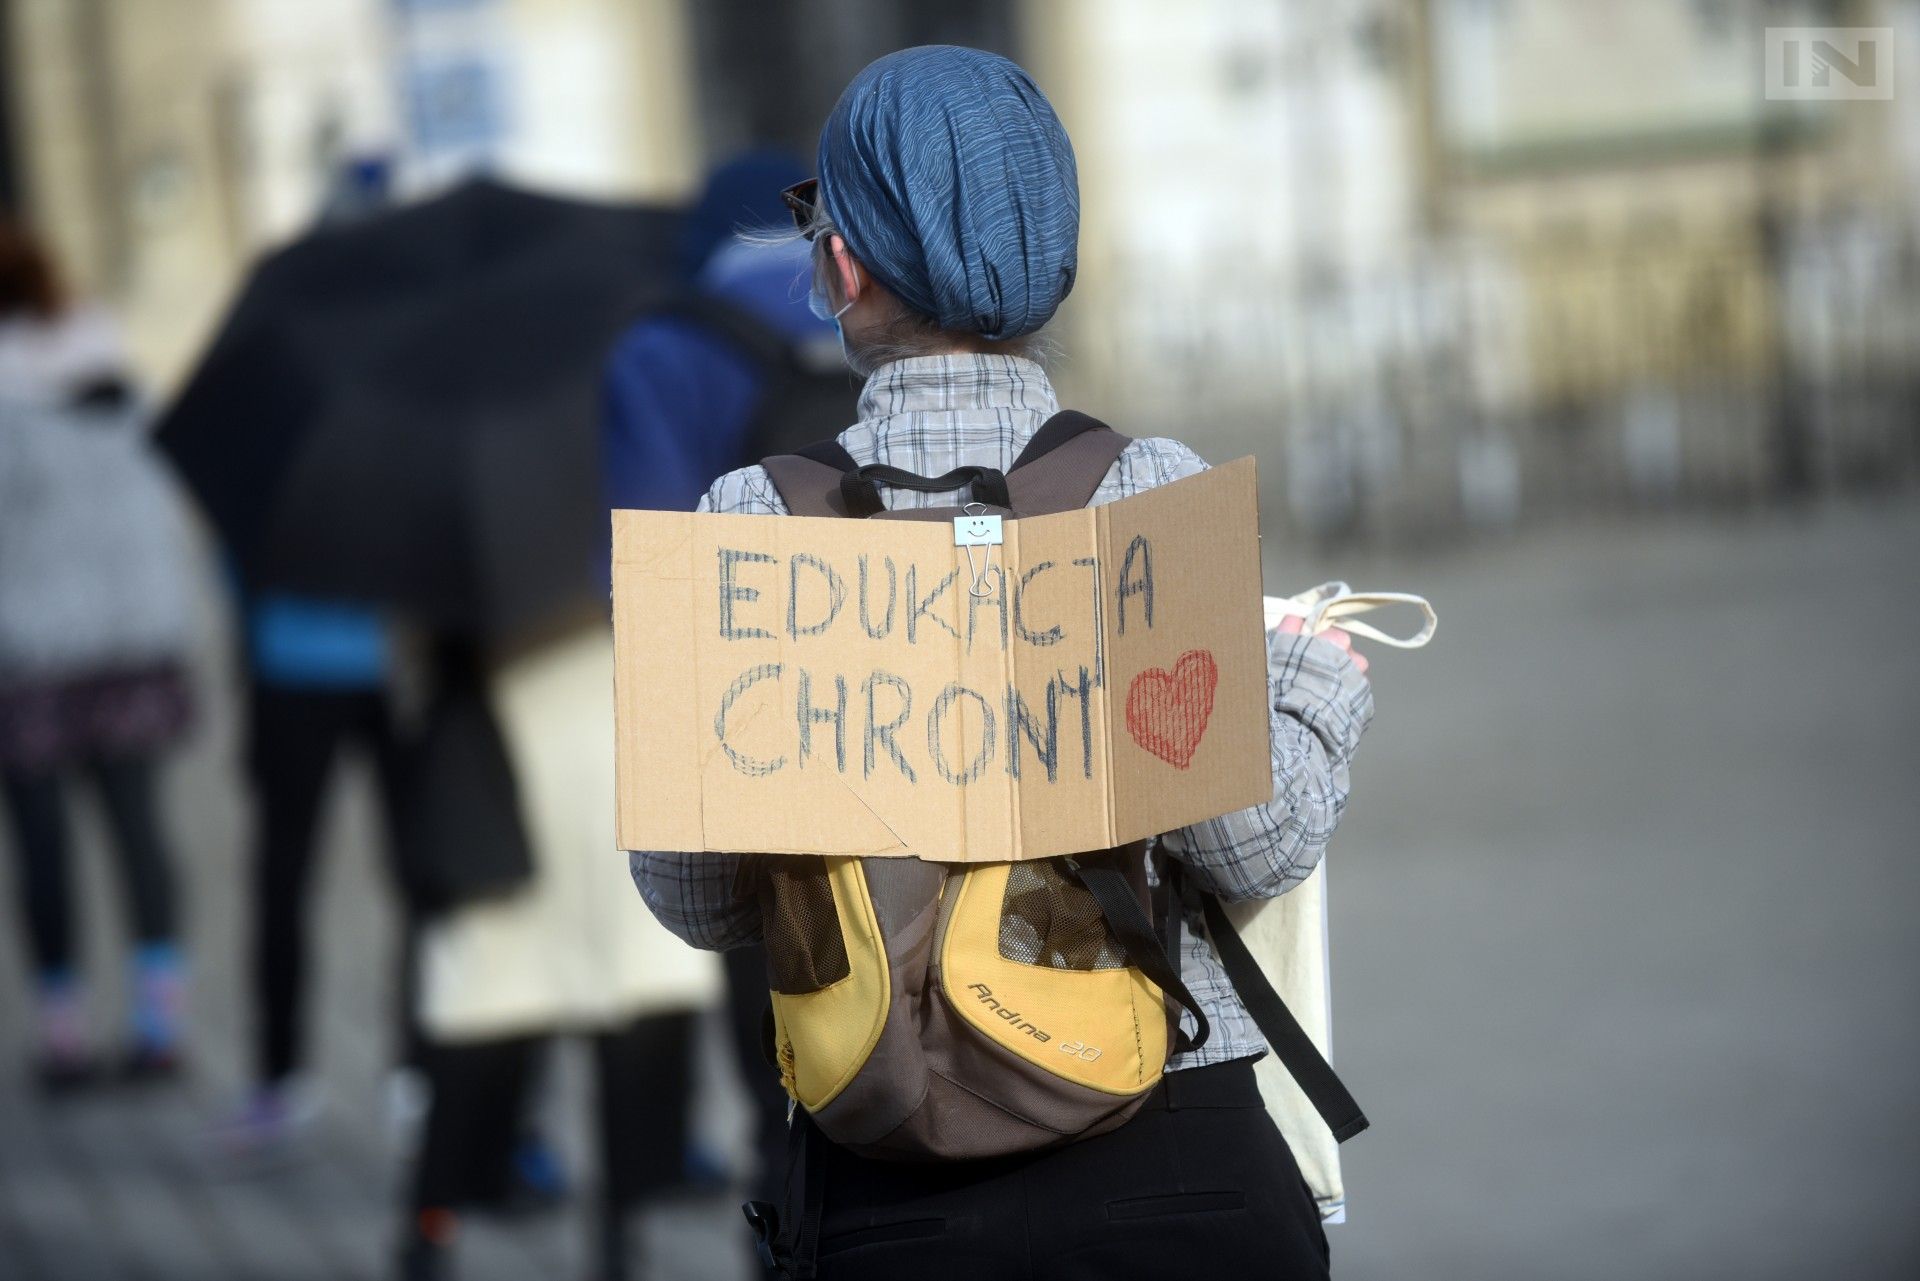 IN
EDUKACJA
CHRONI
Andina 20